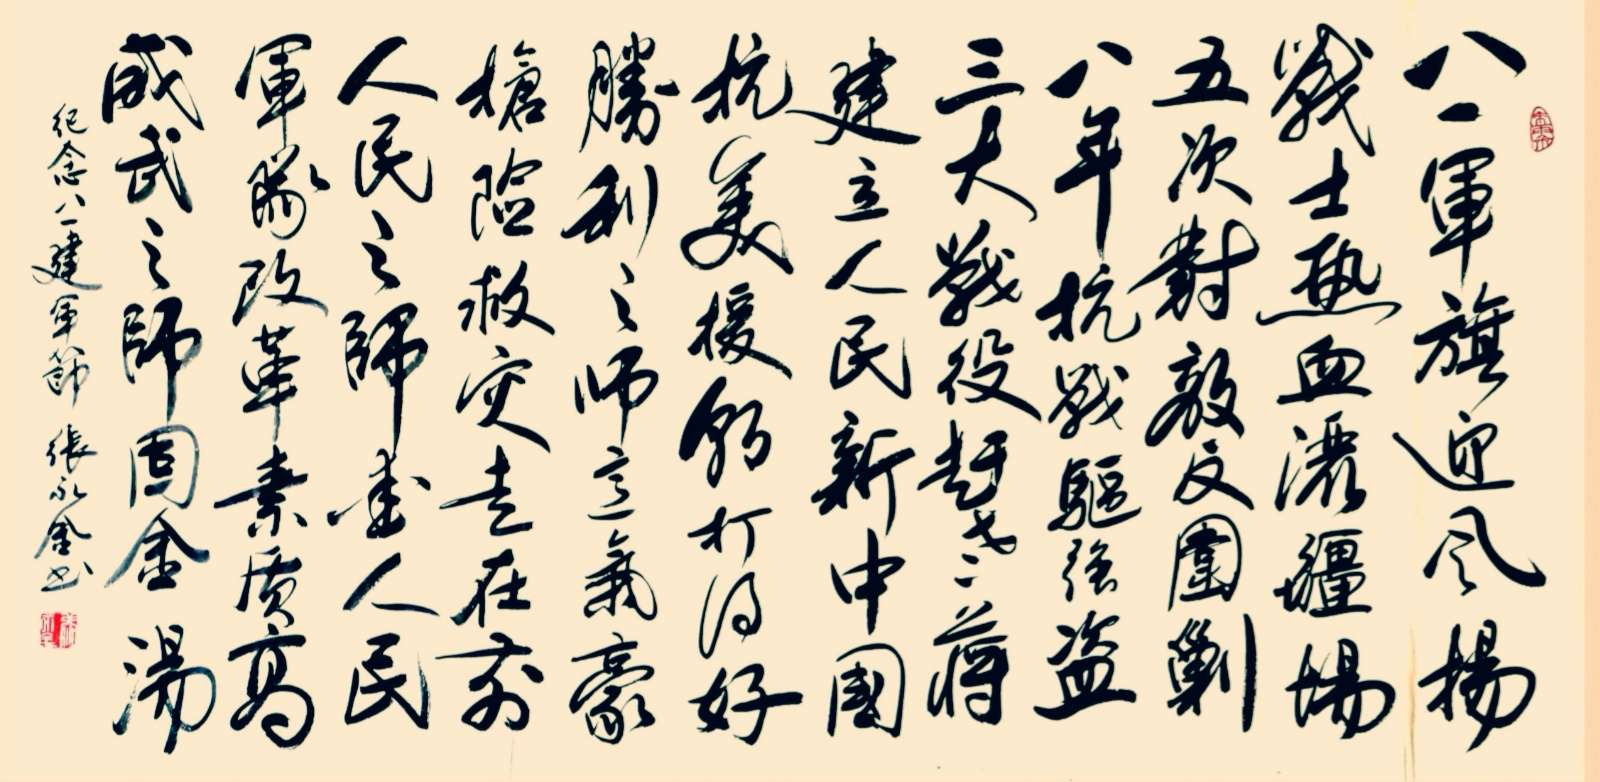 八一軍旗迎风揚
戰士热血灑疆場
五次對敵反圍剿
八年抗戰驅强盗
三大戰役赶老蒋
建立人民新中國
抗美援朝打得好
勝利之师意氣豪
槍險救灾走在前
人民之師爱人民
軍隊改革素质高
威武之師固金湯
纪念八一建军節 張永金书